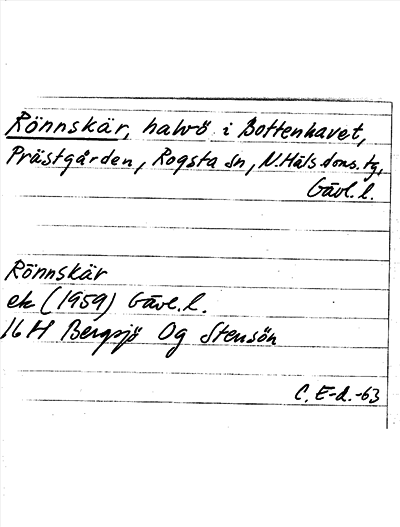 Rönnskär, halvö i Bottenhavet,
Prästgården, Rogsta sn, N. Häls doms. tg,
Gävl. l.
Rönnskär
ek (1959) Gävl. l.
16 H Bergsjö 0g Stensön
C. E-d.-63